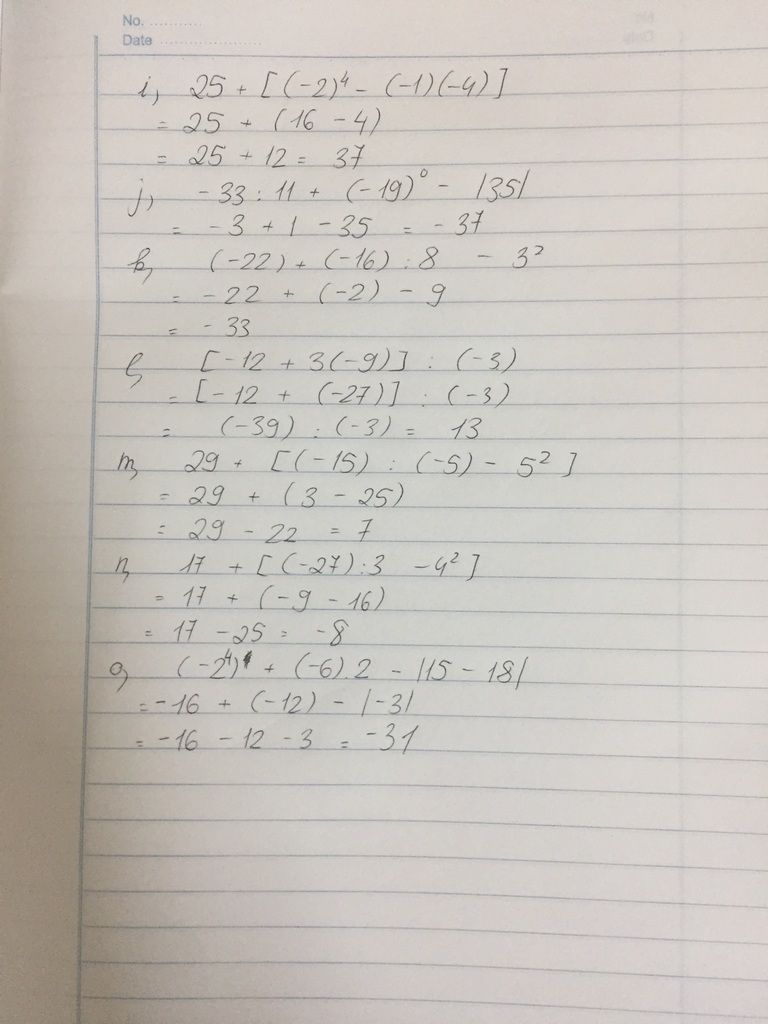 No. ..........
Date ....................
i, 25 + [(-2)⁴ - (-1)(-4)]
= 25 + (16 - 4)
= 25 + 12 = 37
j, -33 : 11 + (-19)⁰ - |35|
= -3 + 1 - 35 = -37
k, (-22) + (-16) : 8 - 3²
= -22 + (-2) - 9
= -33
l, [-12 + 3(-9)] : (-3)
= [-12 + (-27)] : (-3)
= (-39) : (-3) = 13
m, 29 + [(-15) : (-5) - 5²]
= 29 + (3 - 25)
= 29 - 22 = 7
n, 17 + [(-27) : 3 - 4²]
= 17 + (-9 - 16)
= 17 - 25 = -8
o, (-2⁴) + (-6).2 - |15 - 18|
= -16 + (-12) - |-3|
= -16 - 12 - 3 = -31